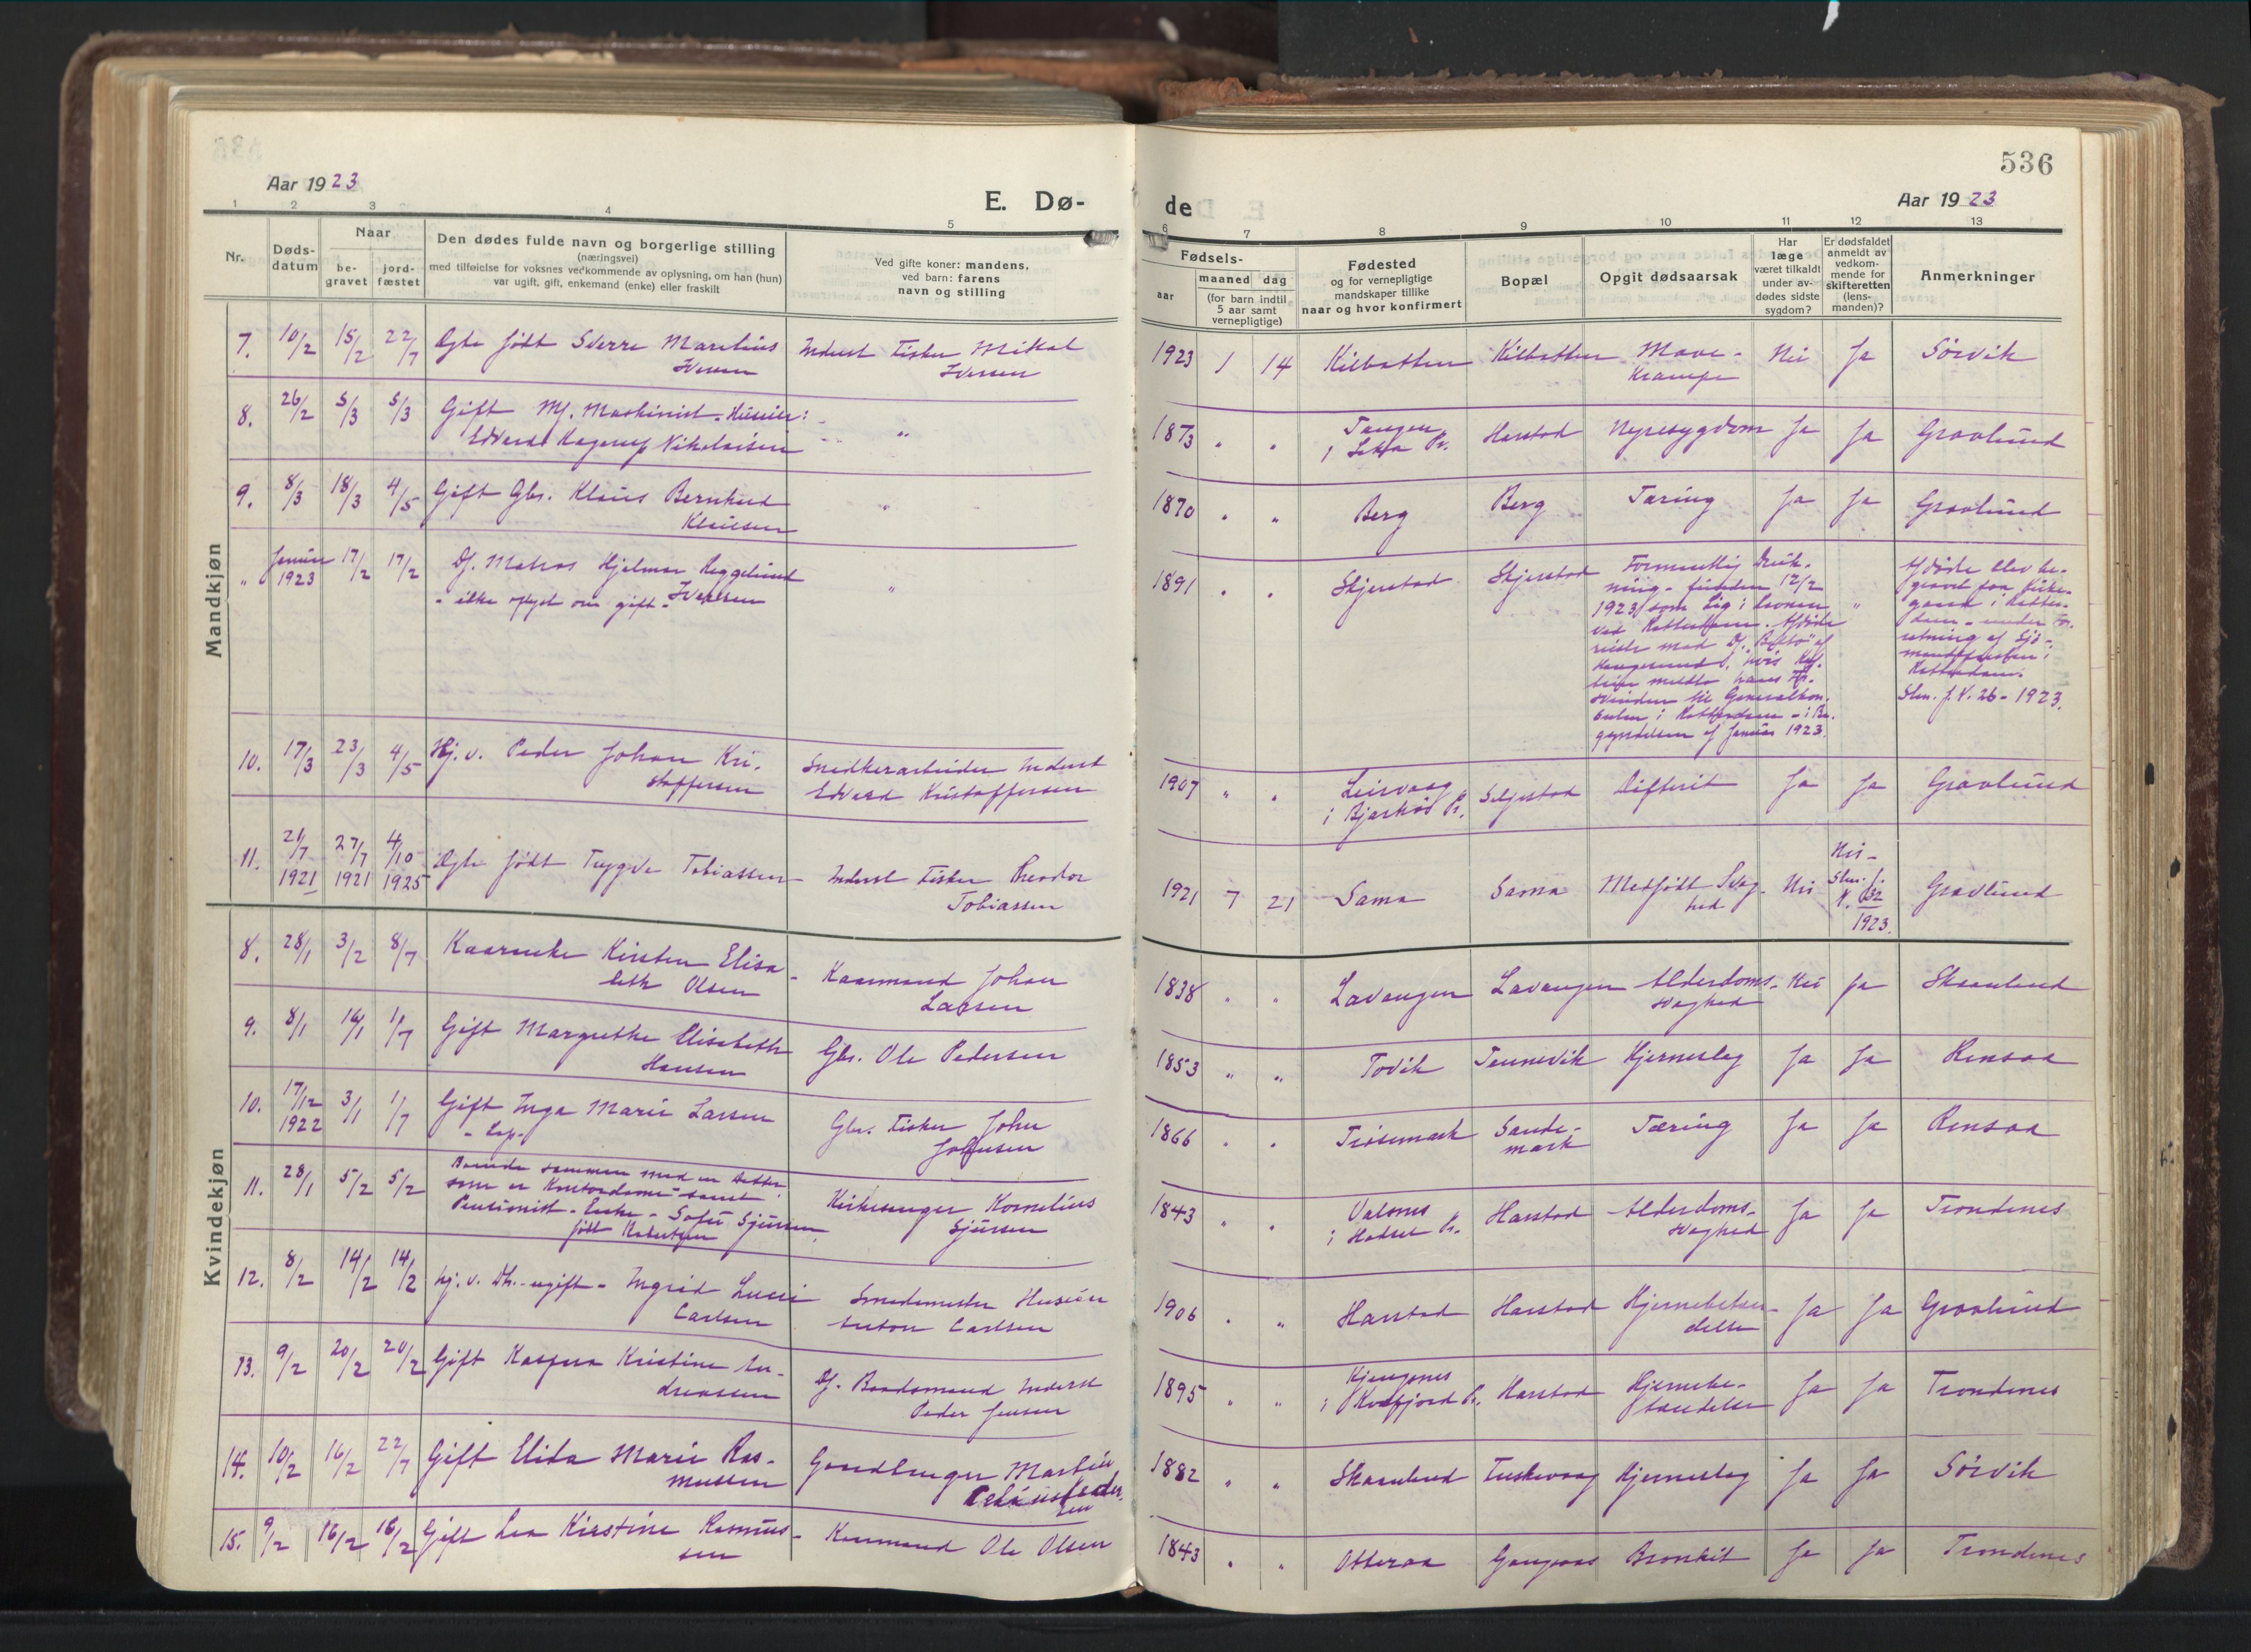 536
Aar 1923
E. Dø-
de
Aar 1923
1 2 3 4 5
6 7 8 9 10 11 12 13
Nr.
Døds-
datum
Naar
be-
gravet
jord-
fæstet
Den dødes fulde navn og borgerlige stilling
(næringsvei)
med tilføielse for voksnes vedkommende av oplysning, om han (hun)
var ugift, gift, enkemand (enke) eller fraskilt
Ved gifte koner: mandens,
ved barn: farens
navn og stilling
Fødsels-
aar
maaned dag
(for barn indtil
5 aar samt
vernepligtige)
Fødested
og for vernepligtige
mandskaper tillike
naar og hvor konfirmert
Bopæl
Opgit dødsaarsak
Har
læge
været tilkaldt
under av-
dødes sidste
sygdom?
Er dødsfaldet
anmeldt av
vedkom-
mende for
skifteretten
(lens-
manden)?
Anmerkninger
Mandkjøn
7. 10/2 15/2 22/7 Ægte født Sverre Marelius
Iversen
Inderst Fisker Mikal
Iversen
1923 1 14 Kilbotten Kilbotten Mave-
Krampe
Nei Ja Sørvik
8. 26/2 5/3 5/3 Gift Maskinist - Huseier:
Edvard Hagerup Nikolaisen
"
1873 " " Tangen
i Leka Pr.
Harstad Nyresygdom Ja Ja Gravlund
9. 8/3 18/3 4/5 Gift Gbr. Klaus Bernhard
Klausen
"
1870 " " Berg Berg Tæring Ja Ja Gravlund
" Januar
1923
17/2 17/2 Df. Matros Hjelmar Heggelund
- ikke oplyst om gift - Iversen
"
1891 " " Skjerstad Skjerstad
Formentlig Druk-
ning - funden 12/2
1923 som Lig i
ved Rotterdam. Afdøde
reiste med D/
Haugesund
meldte hans For-
svinden til Generalkon-
sulen i Rotterdam - i Be-
gyndelsen af Januar 1923.
"
Afdøde blev be-
gravet paa Kirke-
gaard i Rotter-
dam - under For-
retning af Sjø-
mandspresten i
Rotterdam.
Skr. j. N. 26 - 1923.
10. 17/3 23/3 4/5 Hj.v. Peder Johan Kri-
stoffersen
Snedkerarbeider Inderst
Edvard Kristoffersen
1907 " " Leirvaag
i Bjarkøs Pr.
Seljestad Difterit Ja Ja Gravlund
11. 21/7
1921
27/7
1921
4/10
1925
Ægte født Trygve Tobiassen
Inderst Fisker Theodor
Tobiassen
1921 7 21 Sama Sama Medfødt Svag-
hed
Nei Nei -
Skr. j.
N. 62
1923.
Gravlund
Kvindekjøn
8. 28/1 3/2 8/7 Kaarenke Kirsten Elisa-
beth Olsen
Kaarmand Johan
Larsen
1838 " " Lavangen Lavangen Alderdoms-
svaghed
Nei Ja Skaanland
9. 8/1 16/1 1/7 Gift Margrethe Elisabeth
Hansen
Gbr. Ole Pedersen
1853 " " Tovik Tennevik Hjerneslag Ja Ja Rensaa
10. 17/12
1922
3/1 1/7 Gift Inga Marie Larsen
- Lap -
Gbr. Fisker Johan
Johnsen
1866 " " Trøsemark Sande-
mark
Tæring Ja Ja Rensaa
11. 28/1 5/2 5/2 Boende sammen med en Datter
som er Kontordame - samt
Pensionist - Enke - Sofie Sjursen,
født Robertsen
Kirkesanger Kornelius
Sjursen
1843 " " Valsnes
i Hadsel Pr.
Harstad Alderdoms-
svaghed
Ja Ja Trondenes
12. 8/2 14/2 14/2 hj.v. Dtr. - ugift - Ingrid Lucie
Carlsen
Smedemester Huseier
Anton Carlsen
1906 " " Harstad Harstad Hjernebetæn-
delse
Ja Ja Gravlund
13. 9/2 20/2 20/2 Gift Kaspara Kristine An-
dreassen
Df. Baadsmand Inderst
Peder Jensen
1895 " " Kjengsnes
i Kvæfjord Pr.
Harstad Hjernebe-
tændelse
Ja Ja Trondenes
14. 10/2 16/2 22/7 Gift Elida Marie Ras-
mussen
Gaardbruger Martin
Peder-
sen
1882 " " Skaanland Fuskevaag Hjerneslag Ja Ja Sørvik
15. 9/2 16/2 16/2 Gift Lea Kirstine Rasmus-
sen
Kaarmand Ole Olsen
1843 " " Otteraa Gangsaas Bronkit Ja Ja Trondenes